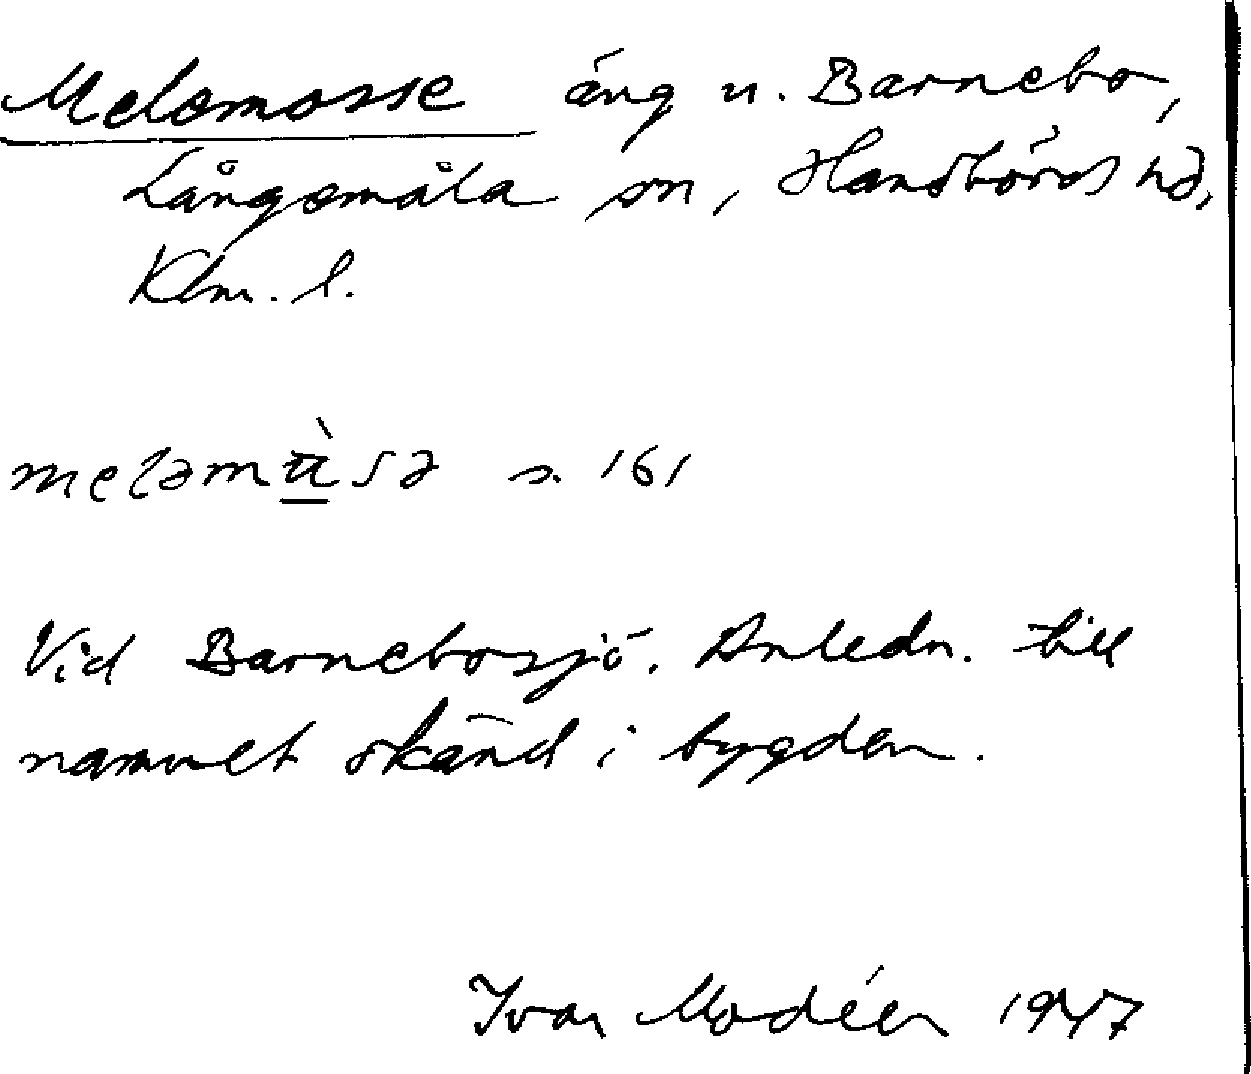 Melomosse äng u. Barnebo,
Långemåla sn, Handbörds hd,
Klm. l.
s. 161
Vid Barnebosjö. Anledn. till
namnet okänd i bygden.
Ivar Modéer 1947